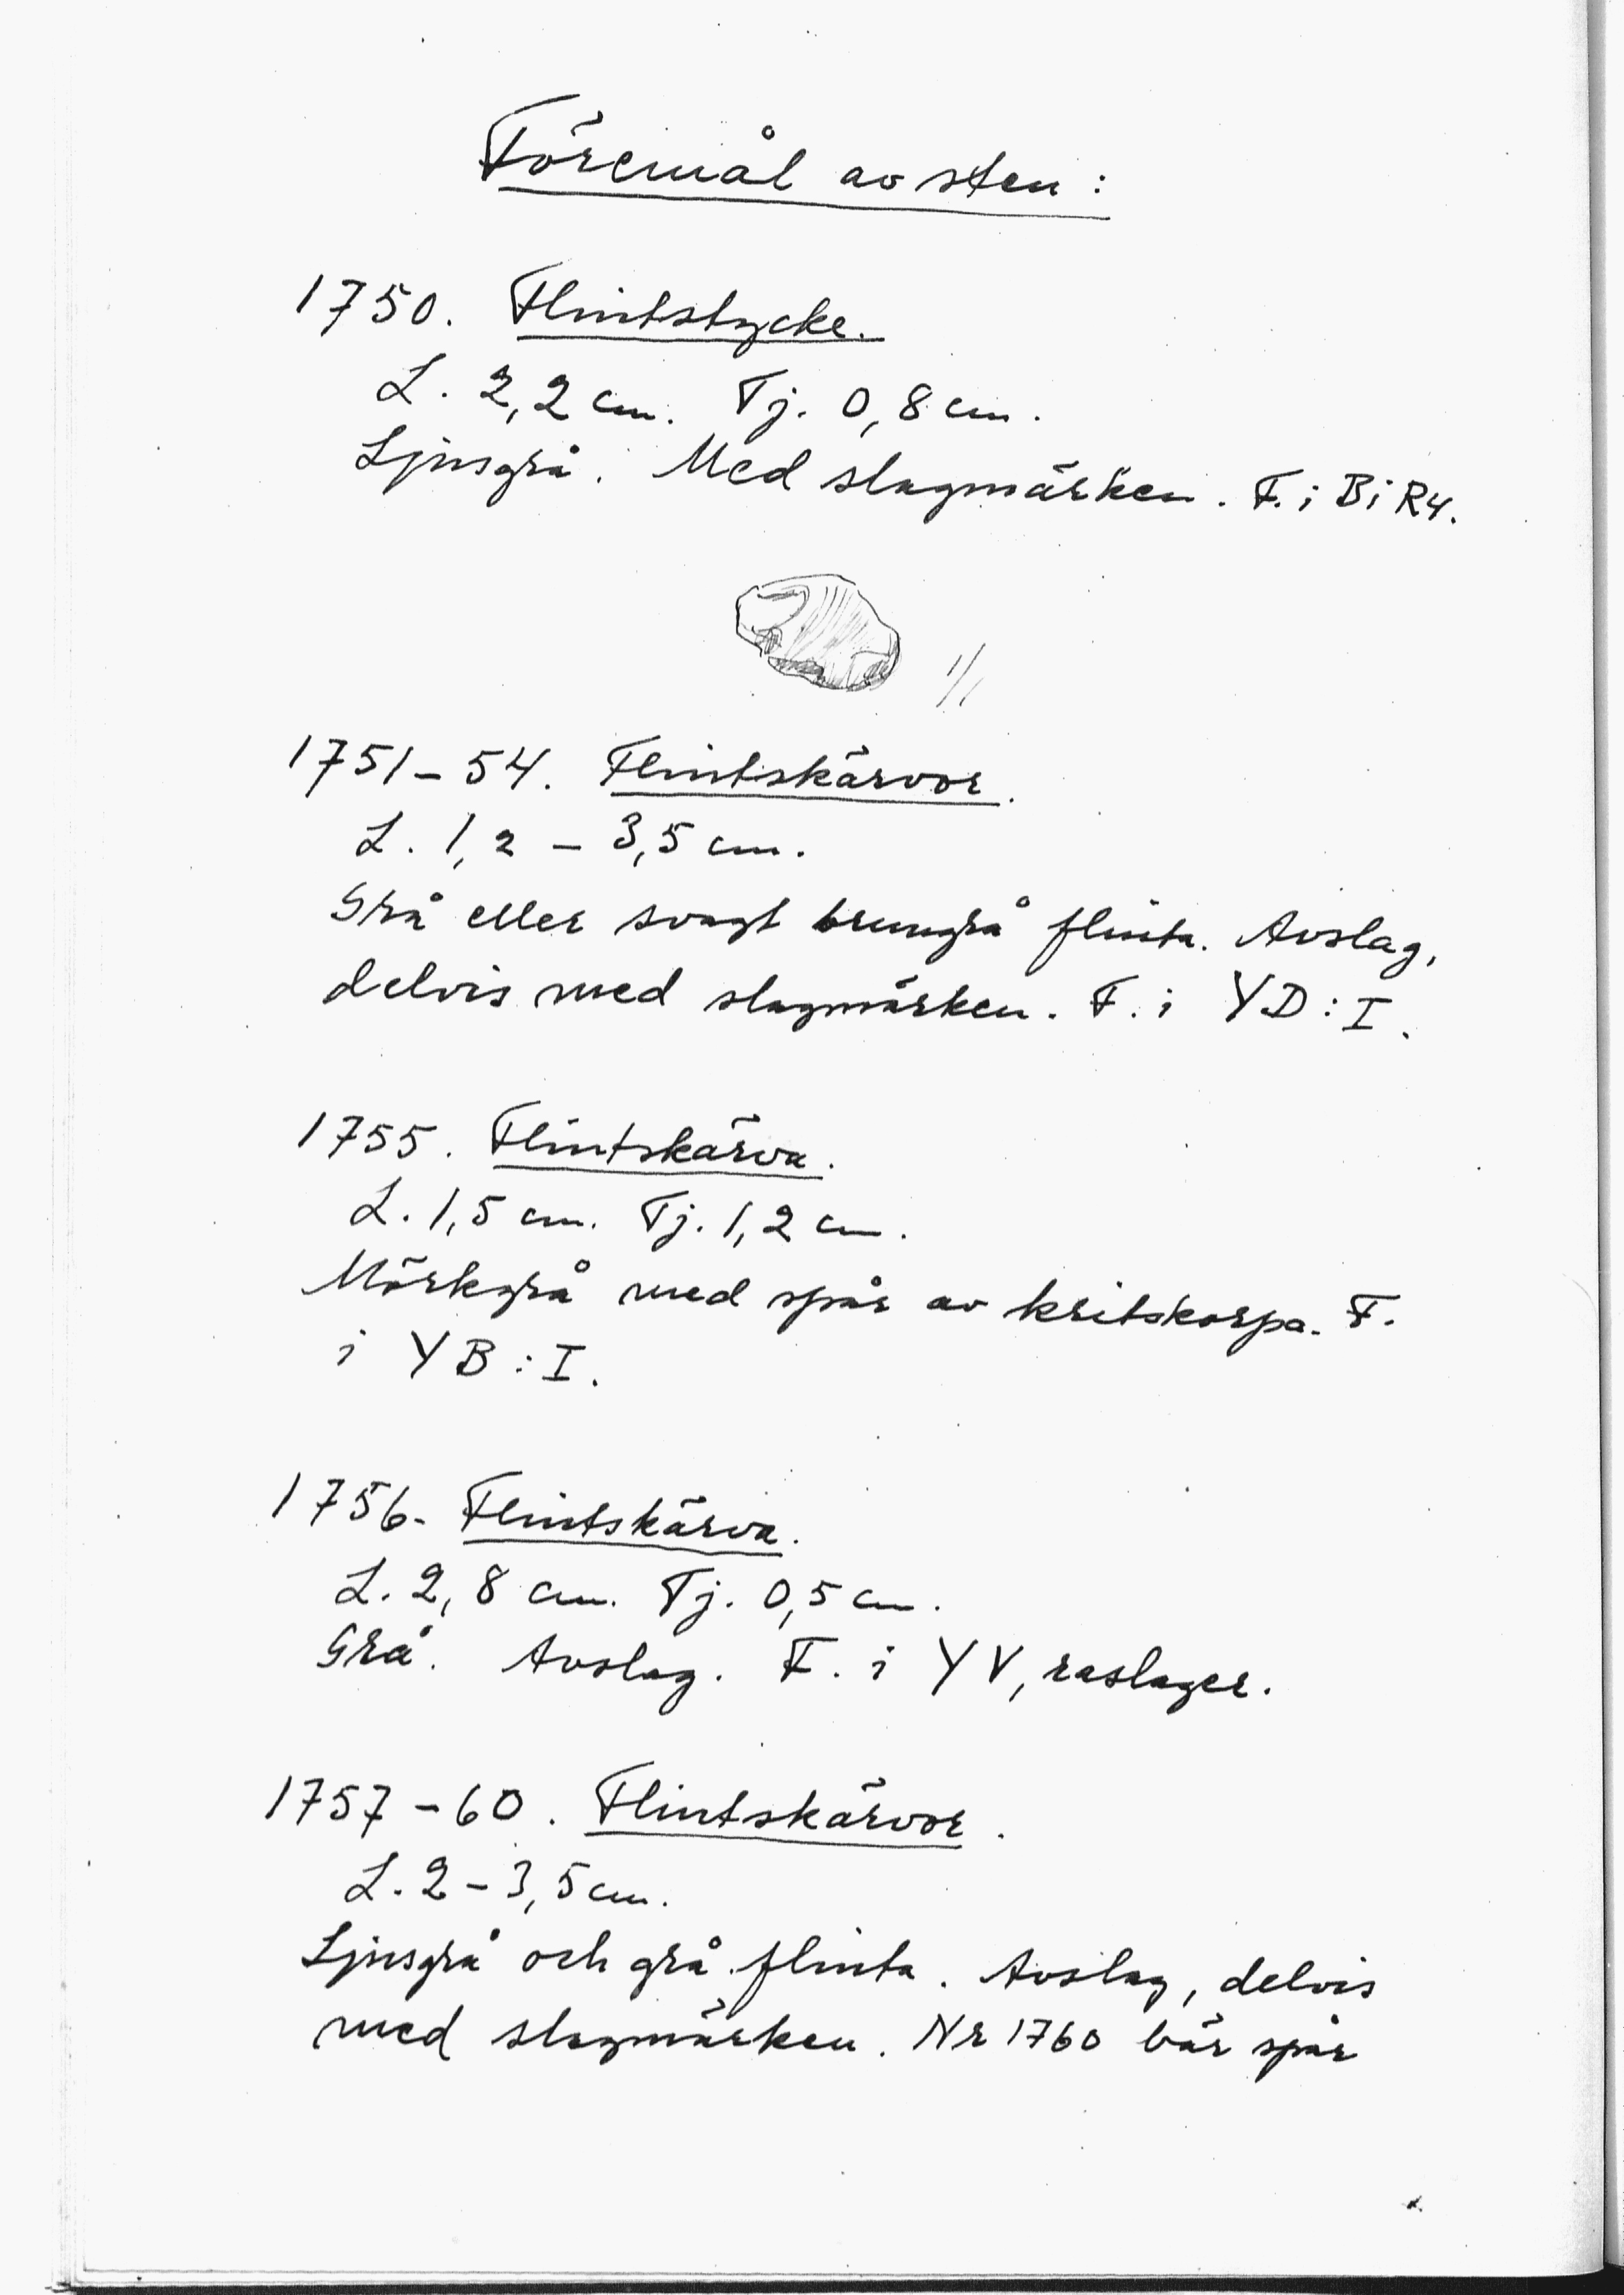 Föremål av sten:
1750. Flintstycke.
L. 2,2 cm. Tj. 0,8 cm.
Ljusgrå. Med slagmärken. F. i B i R4.
1/1
1751-54. Flintskärvor.
L. 1,2 - 3,5 cm.
Grå eller svagt brungrå flinta. Avslag,
delvis med slagmärken. F. i YD:I.
1755. Flintskärva.
L. 1,5 cm. Tj. 1,2 cm.
Mörkgrå med spår av kritskorpa. F.
i YB:I.
1756. Flintskärva.
L. 2,8 cm. Tj. 0,5 cm.
Grå. Avslag. F. i YV, raslager.
1757-60. Flintskärvor.
L. 2-3,5 cm.
Ljusgrå och grå flinta. Avslag, delvis
med slagmärken. Nr 1760 bär spår